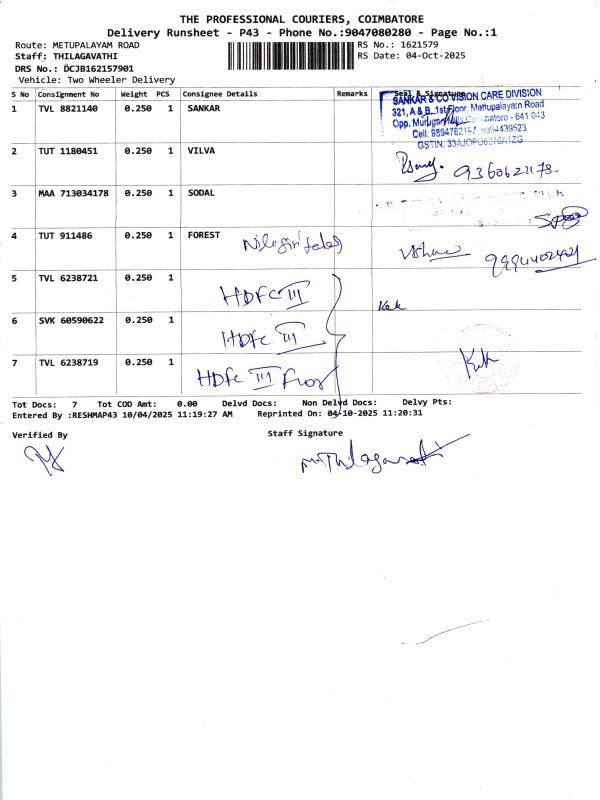 THE PROFESSIONAL COURIERS, COIMBATORE
Delivery Runsheet - P43 - Phone No.:9047080280 - Page No.:1
Route: METUPALAYAM ROAD RS No.: 1621579
Staff: THILAGAVATHI RS Date: 04-Oct-2025
DRS No.: DCJB162157901
Vehicle: Two Wheeler Delivery
S No Consignment No Weight PCS Consignee Details Remarks Seal & Signature
SANKAR & CO VISION CARE DIVISION
1 TVL 8821140 0.250 1 SANKAR
321, A & B, 1st Floor, Mettupalayam Road
Opp. Murugan Mills, Coimbatore - 641 043
Cell: 9894762157,
GSTIN.
2 TUT 1180451 0.250 1 VILVA
9360621178
3 MAA 713034178 0.250 1 SODAL
4 TUT 911486 0.250 1 FOREST
5 TVL 6238721 0.250 1 HDFC III
6 SVK 60590622 0.250 1 HDFC III
7 TVL 6238719 0.250 1 HDFC III Floor
Tot Docs: 7 Tot COD Amt: 0.00 Delvd Docs: Non Delvd Docs: Delvy Pts:
Entered By :RESHMAP43 10/04/2025 11:19:27 AM Reprinted On: 04-10-2025 11:20:31
Verified By Staff Signature